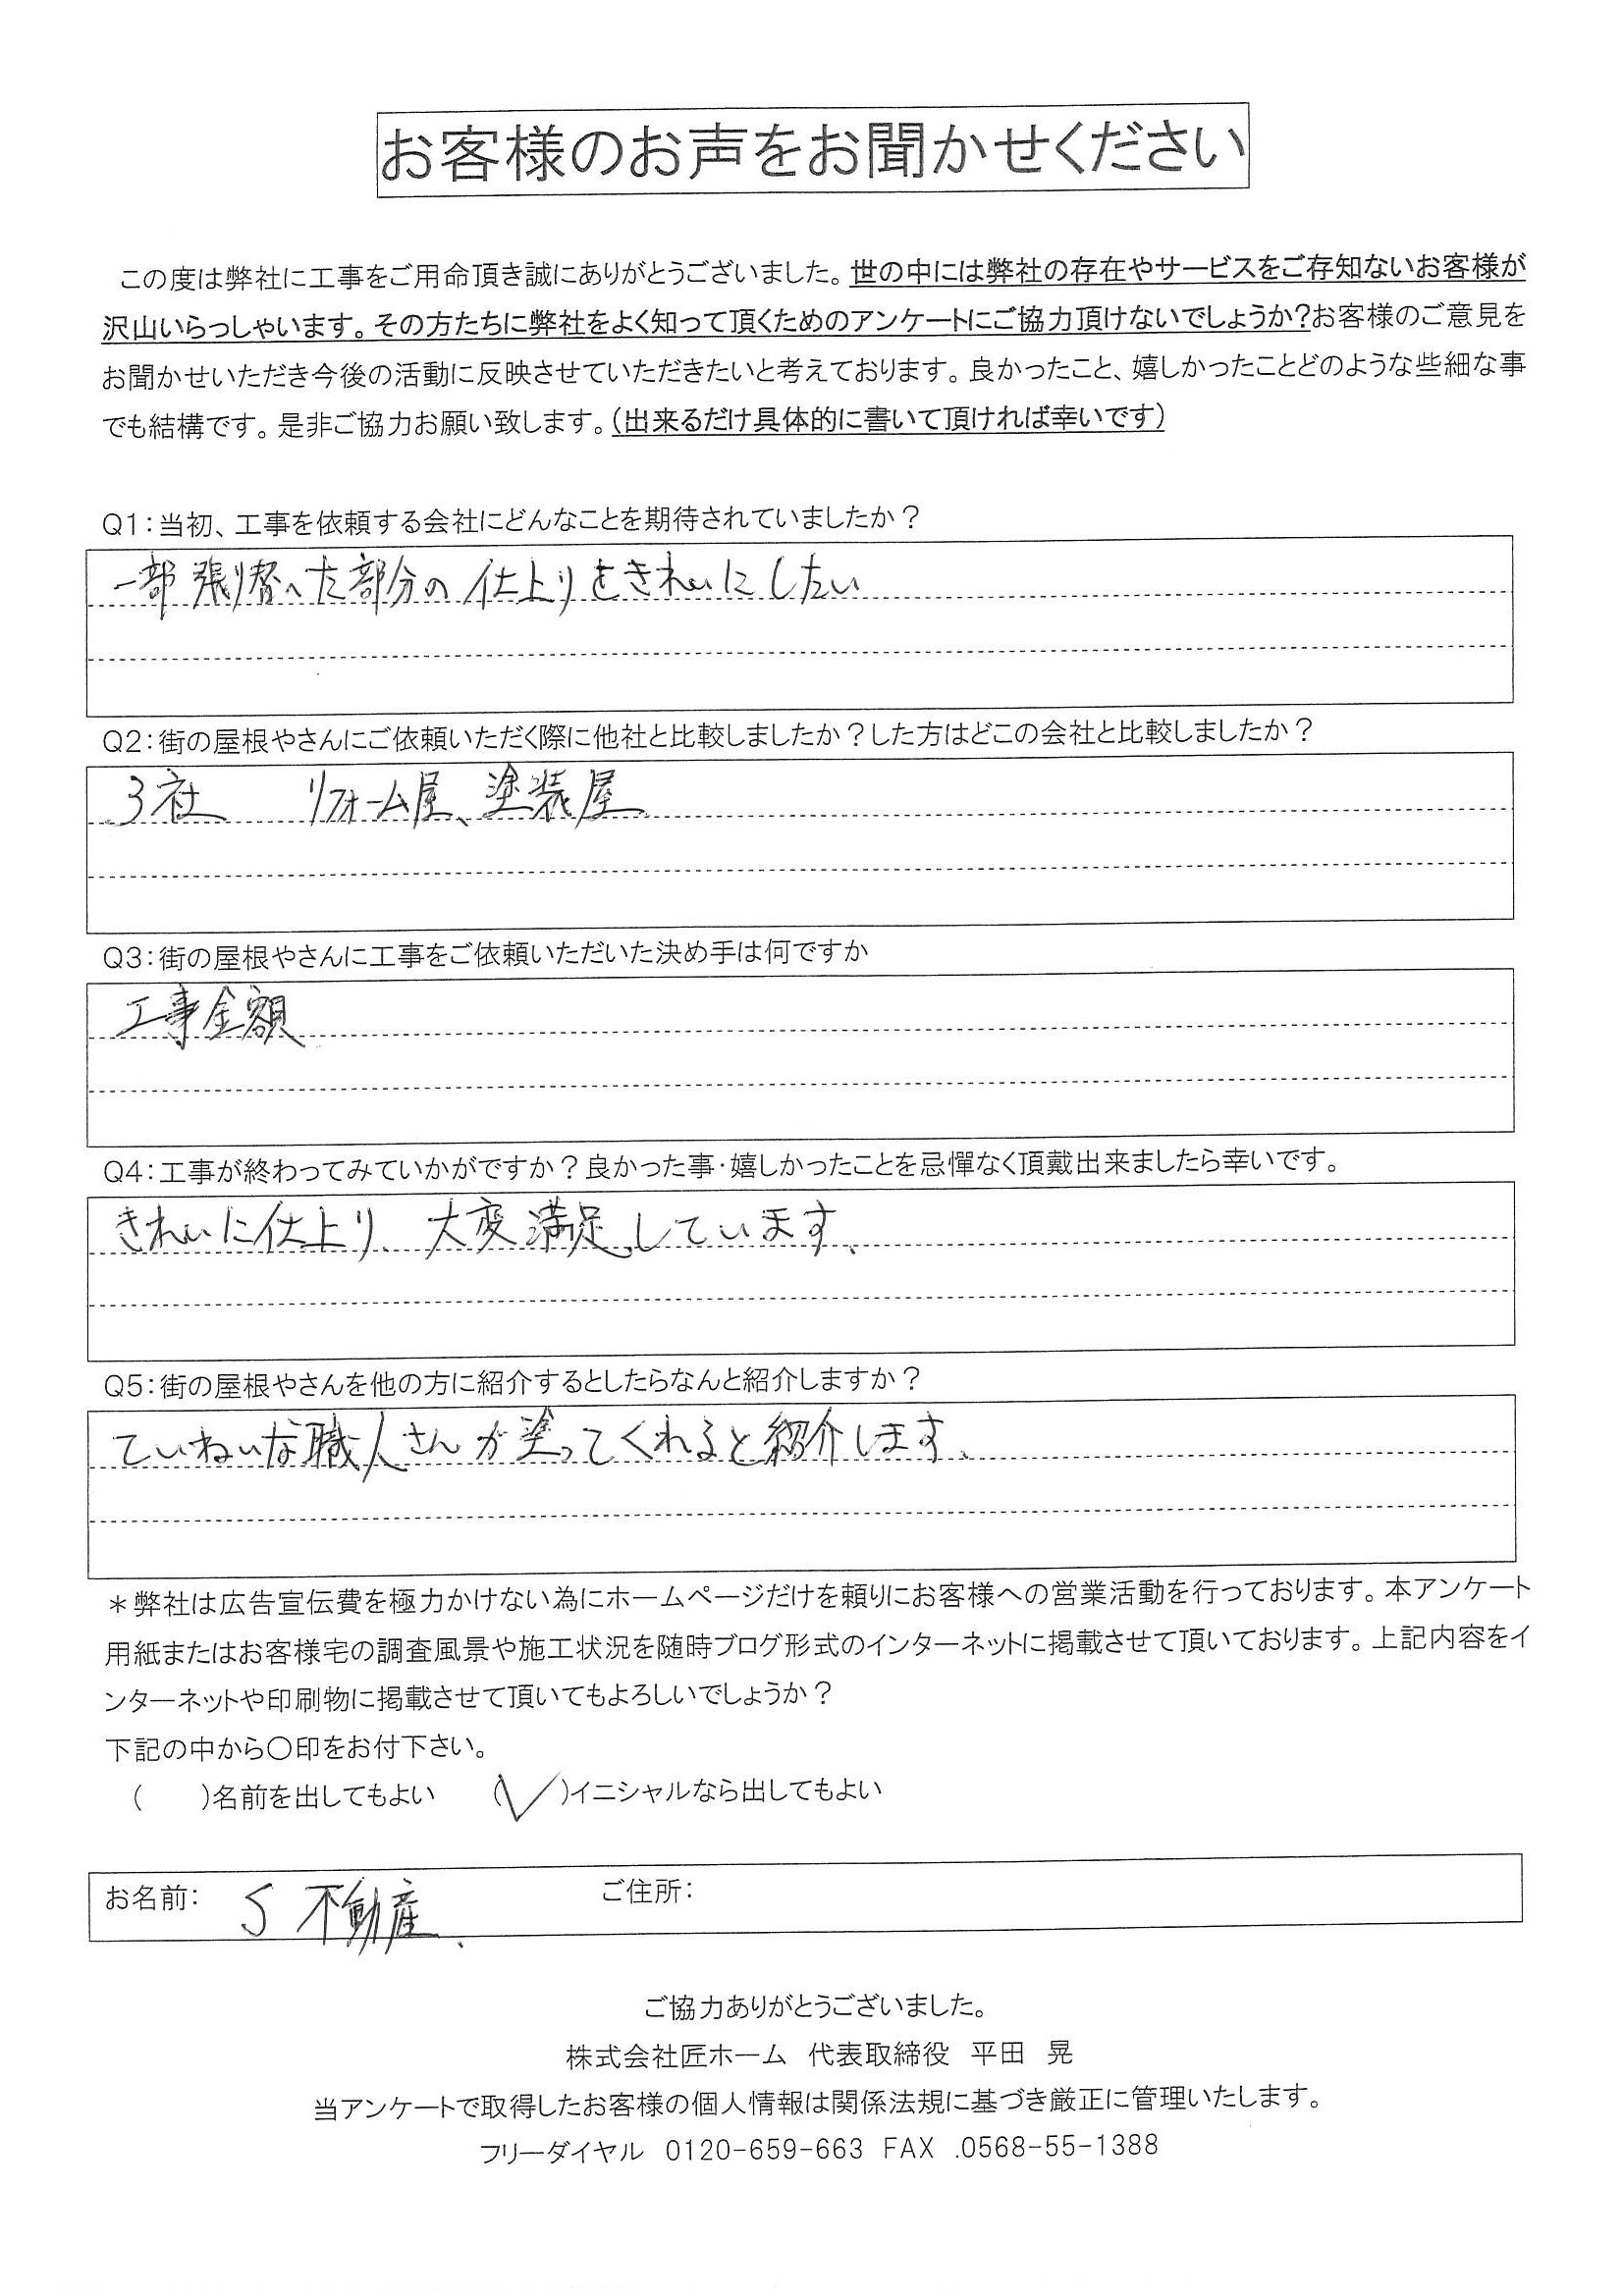 お客様のお声をお聞かせください
この度は弊社に工事をご用命頂き誠にありがとうございました。世の中には弊社の存在やサービスをご存知ないお客様が
沢山いらっしゃいます。その方たちに弊社をよく知って頂くためのアンケートにご協力頂けないでしょうか?お客様のご意見を
お聞かせいただき今後の活動に反映させていただきたいと考えております。良かったこと、嬉しかったことどのような些細な事
でも結構です。是非ご協力お願い致します。(出来るだけ具体的に書いて頂ければ幸いです)
Q1:当初、工事を依頼する会社にどんなことを期待されていましたか?
一部張り替へた部分の仕上りをきれいにしたい
Q2:街の屋根やさんにご依頼いただく際に他社と比較しましたか?した方はどこの会社と比較しましたか?
3社 リフォーム屋、塗装屋
Q3:街の屋根やさんに工事をご依頼いただいた決め手は何ですか
工事金額
Q4:工事が終わってみていかがですか?良かった事・嬉しかったことを忌憚なく頂戴出来ましたら幸いです。
きれいに仕上り、大変満足しています。
Q5:街の屋根やさんを他の方に紹介するとしたらなんと紹介しますか?
ていねいな職人さんが塗ってくれると紹介します。
*弊社は広告宣伝費を極力かけない為にホームページだけを頼りにお客様への営業活動を行っております。本アンケート
用紙またはお客様宅の調査風景や施工状況を随時ブログ形式のインターネットに掲載させて頂いております。上記内容をイ
ンターネットや印刷物に掲載させて頂いてもよろしいでしょうか?
下記の中から○印をお付下さい。
( )名前を出してもよい (✓)イニシャルなら出してもよい
お名前: S 不動産. ご住所:
ご協力ありがとうございました。
株式会社匠ホーム 代表取締役 平田 晃
当アンケートで取得したお客様の個人情報は関係法規に基づき厳正に管理いたします。
フリーダイヤル 0120-659-663 FAX .0568-55-1388